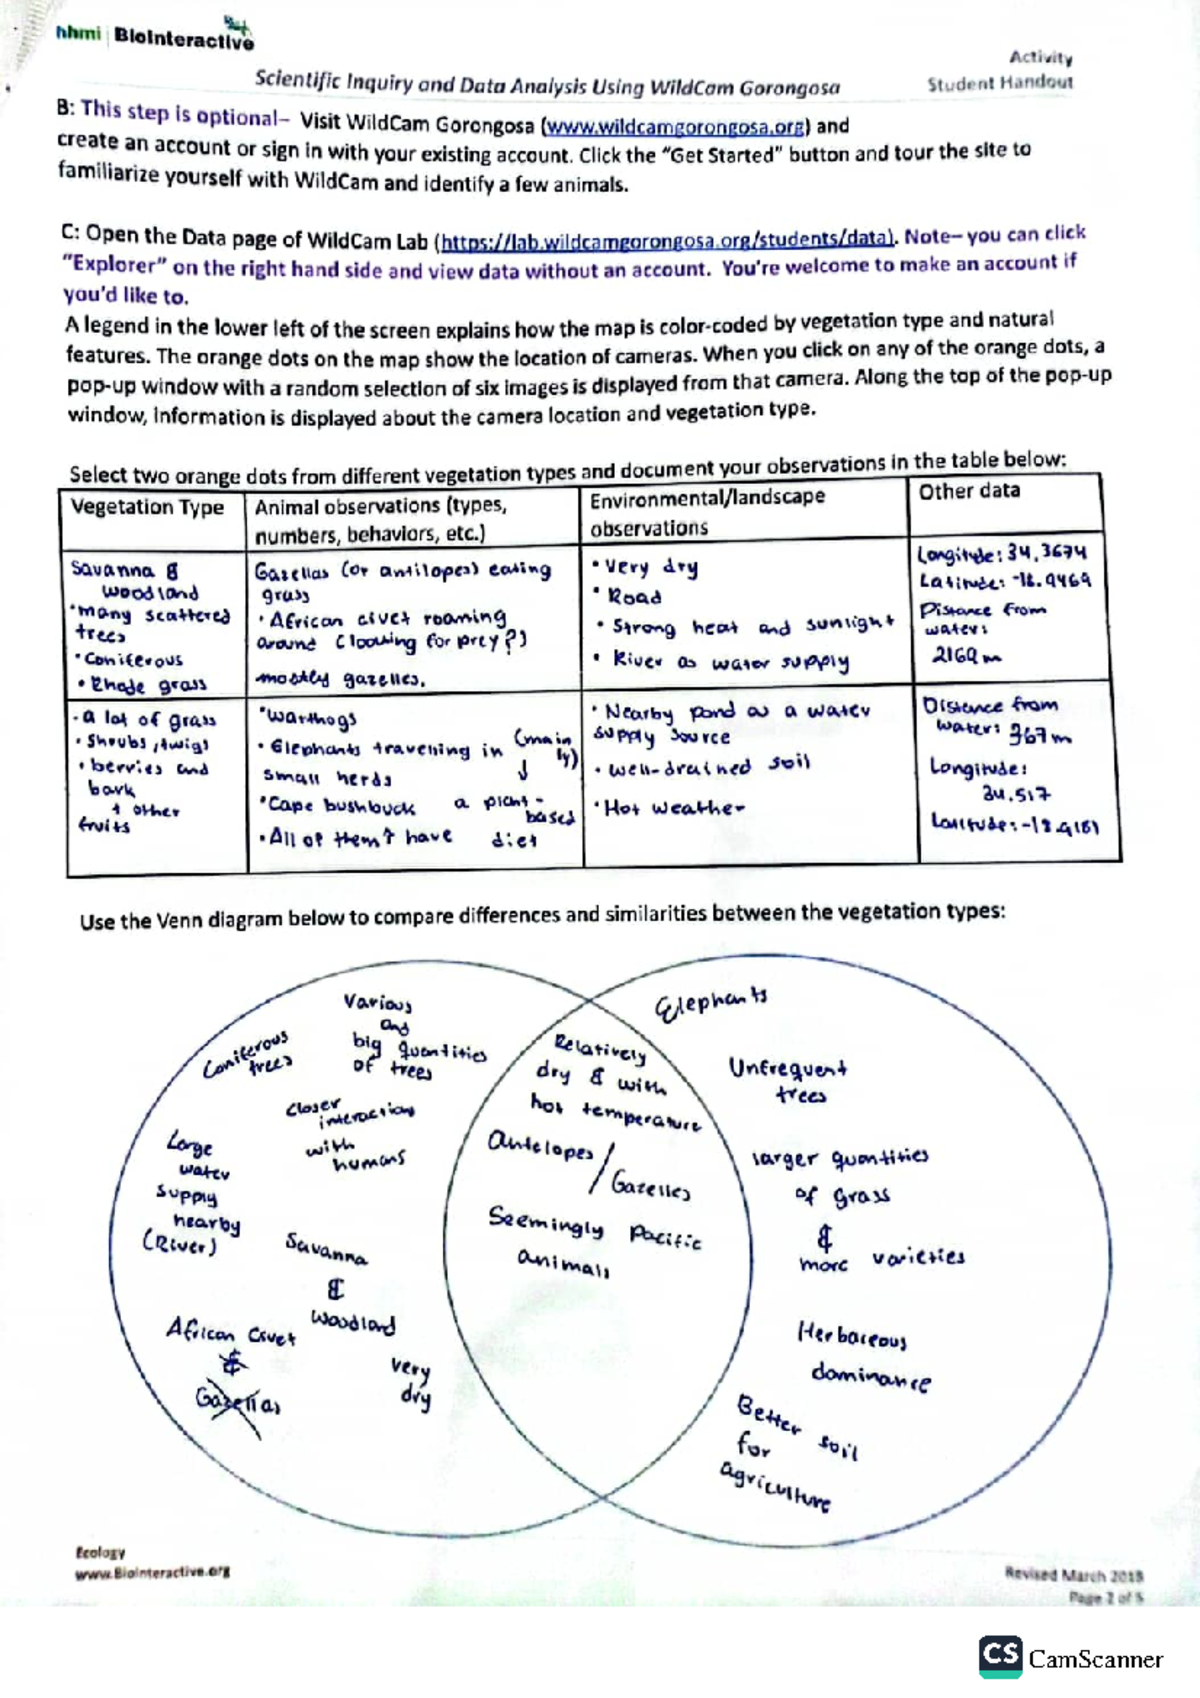 hhmi BioInteractive
Activity
Scientific Inquiry and Data Analysis Using WildCam Gorongosa
Student Handout
B: This step is optional– Visit WildCam Gorongosa (www.wildcamgorongosa.org) and
create an account or sign in with your existing account. Click the “Get Started” button and tour the site to
familiarize yourself with WildCam and identify a few animals.
C: Open the Data page of WildCam Lab (https://lab.wildcamgorongosa.org/students/data). Note– you can click
“Explorer” on the right hand side and view data without an account. You’re welcome to make an account if
you’d like to.
A legend in the lower left of the screen explains how the map is color-coded by vegetation type and natural
features. The orange dots on the map show the location of cameras. When you click on any of the orange dots, a
pop-up window with a random selection of six images is displayed from that camera. Along the top of the pop-up
window, information is displayed about the camera location and vegetation type.
Select two orange dots from different vegetation types and document your observations in the table below:
Vegetation Type
Animal observations (types,
numbers, behaviors, etc.)
Environmental/landscape
observations
Other data
Savanna &
woodland
•many scattered
trees
•Coniferous
•Rhode grass
Gazellas (or antilopes) eating
grass
•African civet roaming
around (looking for prey?)
mostly gazelles.
•Very dry
•Road
•Strong heat and sunlight
•River as water supply
Longitude: 34.3674
Latitude: -18.9469
Distance from
water:
2169 m
•a lot of grass
•Shrubs, twigs
•berries and
bark
+ other
fruits
•Warthogs
•Elephants travelling in
small herds
•Cape bushbuck
•All of them have
(main
ly)
a plant-
based
diet
•Nearby pond as a water
supply source
•well-drained soil
•Hot weather
Distance from
water: 367m
Longitude:
34.517
Latitude: -18.9181
Use the Venn diagram below to compare differences and similarities between the vegetation types:
Various
and
big quantities
of trees
Coniferous
trees
Closer
interaction
with
humans
Large
water
supply
nearby
(River)
Savanna
&
Woodland
African Civet
&
Gazellas
very
dry
Relatively
dry & with
hot temperature
Antelopes/
Gazelles
Seemingly Pacific
animals
Elephants
Unfrequent
trees
larger quantities
of grass
&
more varieties
Herbaceous
dominance
Better soil
for
agriculture
Ecology
www.BioInteractive.org
Revised March 2018
Page 2 of 5
CS CamScanner